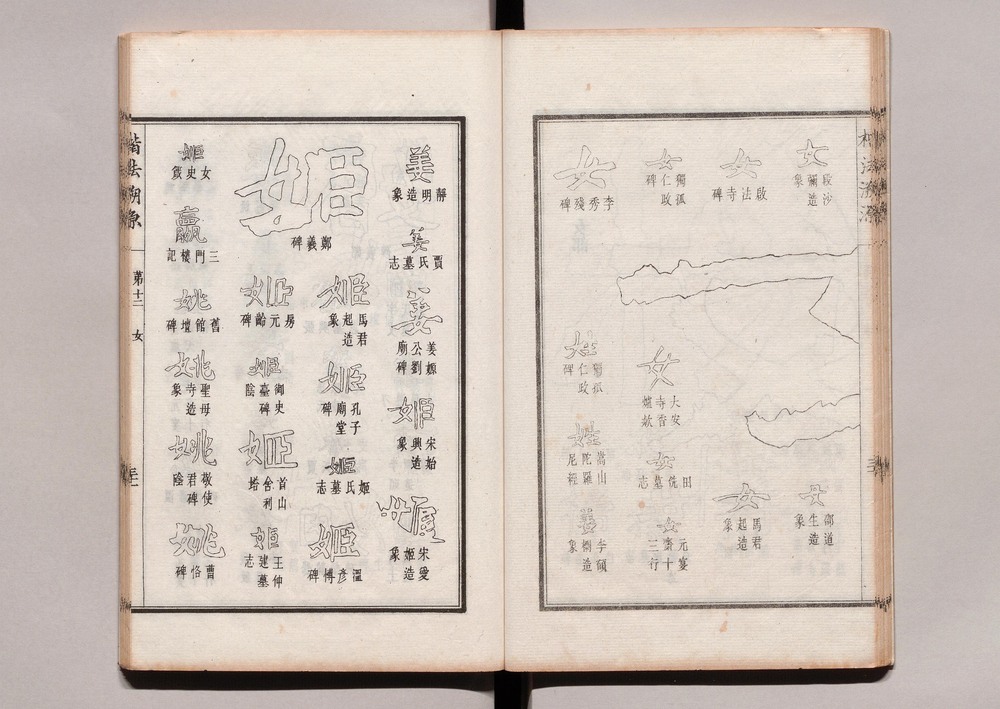 楷法溯源
女
段沙彌造象
女
邵道生造象
女
啟法寺碑
女
馬君起造象
女
獨孤仁政碑
女
大安寺香爐款
女
田侁墓志
女
元宴齋十三行
女
李秀殘碑
姓
獨孤仁政碑
姓
嵩山陀羅尼經
姜
造象
姜
靜明造象
姜
賈氏墓志
姜
姜嫄公劉廟碑
姬
宋始興造象
姬
宋愛姬造象
姬
鄭羲碑
姬
馬君起造象
姬
孔子廟堂碑
姬
姬氏墓志
姬
溫彥博碑
姬
房元齡碑
姬
御史臺碑陰
姬
首山舍利塔
姬
王仲建墓志
姬
女史箴
嬴
三門樓記
姚
舊館壇碑
姚
聖母寺造象
姚
敬使君碑陰
姚
曹恪碑
楷法溯源
第十二
女